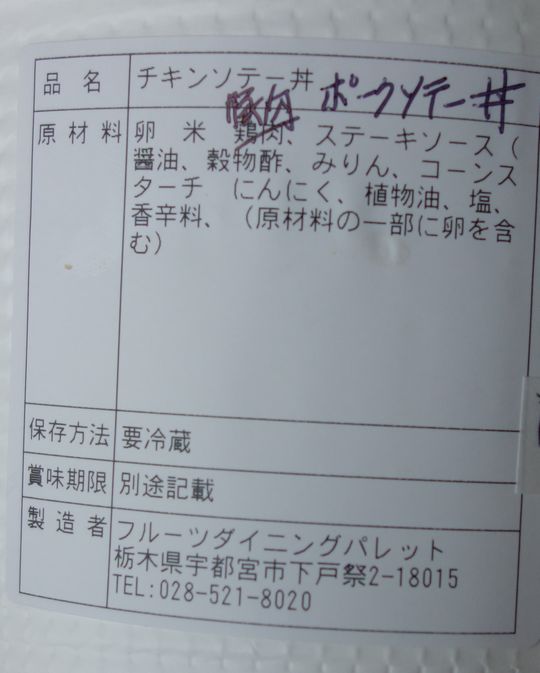 品名 チキンソテー丼 ポークソテー丼
豚肉
原材料 卵 米 鶏肉、ステーキソース(
醤油、穀物酢、みりん、コーンス
ターチ にんにく、植物油、塩、
香辛料、(原材料の一部に卵を含
む)
保存方法 要冷蔵
賞味期限 別途記載
製造者 フルーツダイニングパレット
栃木県宇都宮市下戸祭2-18015
TEL:028-521-8020